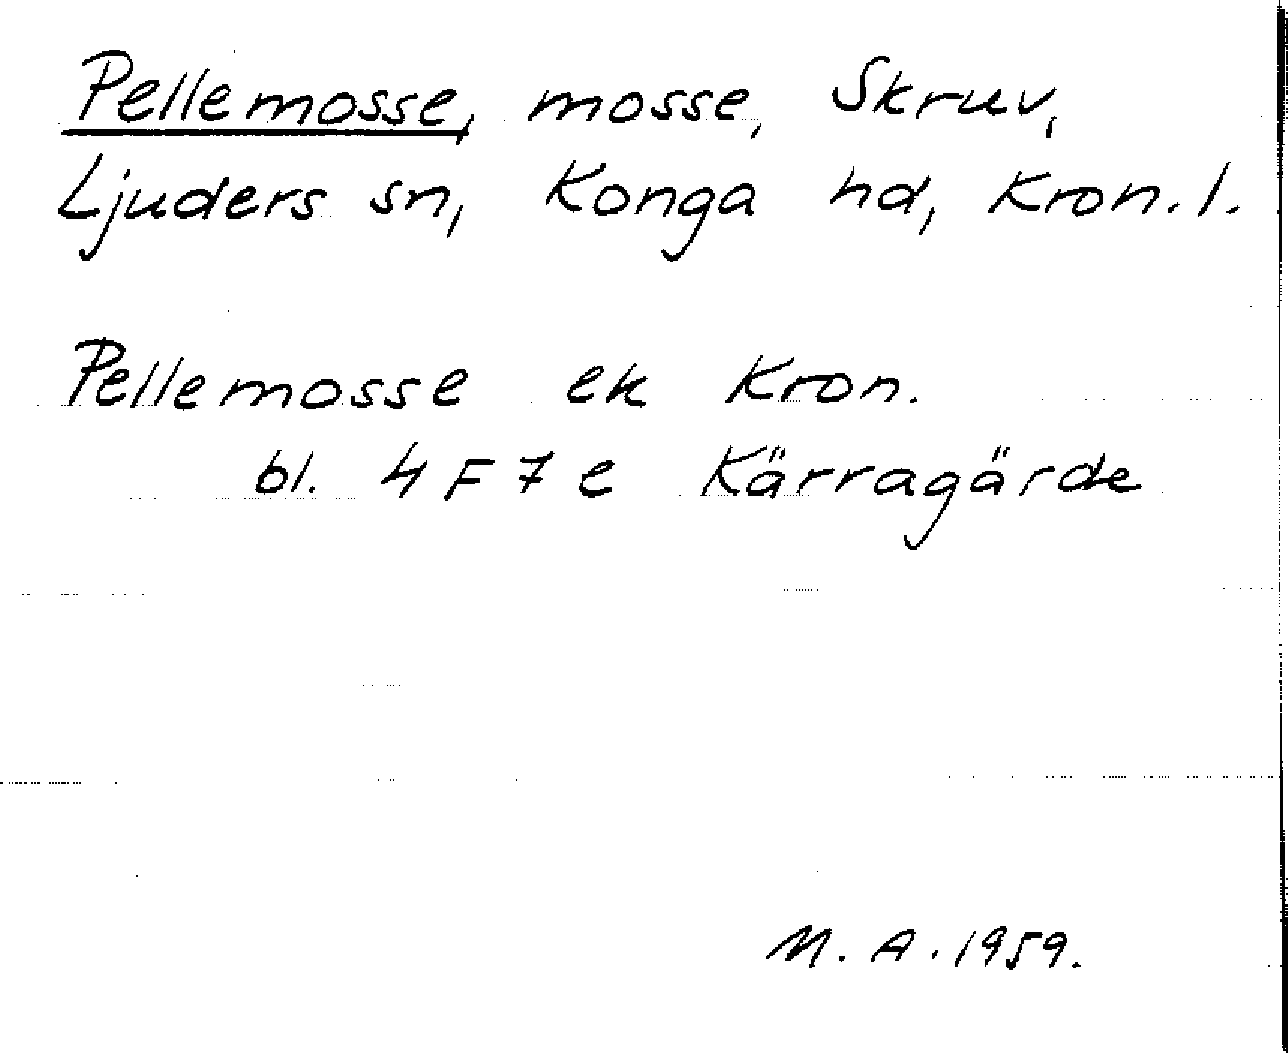 Pellemosse, mosse, Skruv,
Ljuders sn, Konga hd, Kron. l.
Pellemosse ek Kron.
bl. 4 F 7 e Kärragärde
M. A. 1959.